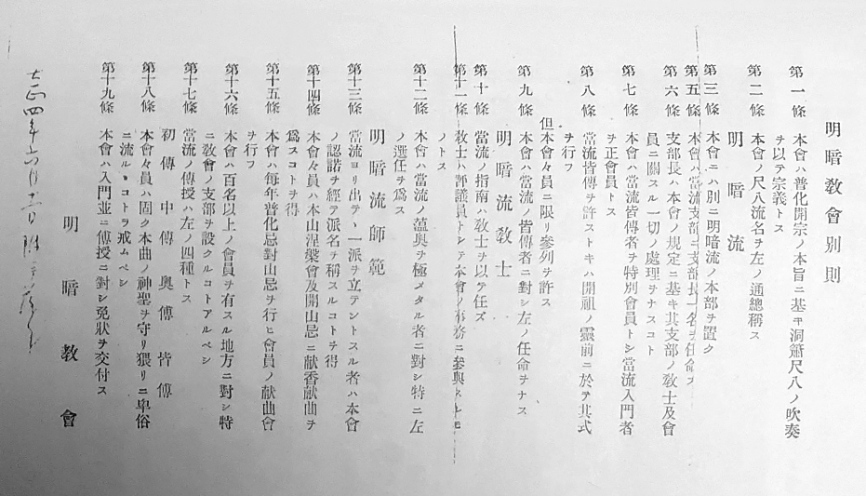 明暗敎會別則
第一條 本會ハ普化開宗ノ本旨ニ基キ洞簫尺八ノ吹奏
チ以テ宗義トス
第二條 本會ノ尺八流名ヲ左ノ通總稱ス
明暗流
第三條 本會ニハ別ニ明暗流ノ本部ヲ置ク
第五條 本會ハ當流支部ニ支部長一名ヲ任命ス
第六條 支部長ハ本會ノ規定ニ基キ其支部ノ敎士及會
員ニ關スル一切ノ處理ヲナスコト
第七條 本會ハ當流皆傳者ヲ特別會員トシ當流入門者
ヲ正會員トス
第八條 當流皆傳ヲ許ストキハ開祖ノ靈前ニ於テ其式
ヲ行フ
但本會々員ニ限リ參列ヲ許ス
第九條 本會ハ當流ノ皆傳者ニ對シ左ノ任命ヲナス
明暗流敎士
第十條 當流ノ指南ハ敎士ヲ以テ任ズ
第十一條 敎士ハ評議員トシテ本會ノ事務ニ參與スルモ
ノトス
第十二條 本會ハ當流ノ蘊奧ヲ極メタル者ニ對シ特ニ左
ノ選任ヲ爲ス
明暗流師範
第十三條 當流ヨリ出テヽ一派ヲ立テントスル者ハ本會
ノ認諾ヲ經テ派名ヲ稱スルコトヲ得
第十四條 本會々員ハ本山涅槃會及開山忌ニ献香献曲ヲ
爲スコトヲ得
第十五條 本會ハ每年普化忌對山忌ヲ行ヒ會員ノ献曲會
ヲ行フ
第十六條 本會ハ百名以上ノ會員ヲ有スル地方ニ對シ特
ニ敎會ノ支部ヲ設クルコトアルベシ
第十七條 當流ノ傳授ハ左ノ四種トス
初傳 中傳 奧傳 皆傳
第十八條 本會々員ハ固ク本曲ノ神聖ヲ守リ猥リニ卑俗
ニ流ルヽコトヲ戒ムベシ
第十九條 本會ハ入門並ニ傳授ニ對シ免狀ヲ交付ス
明暗敎會
大正四年六月十一日